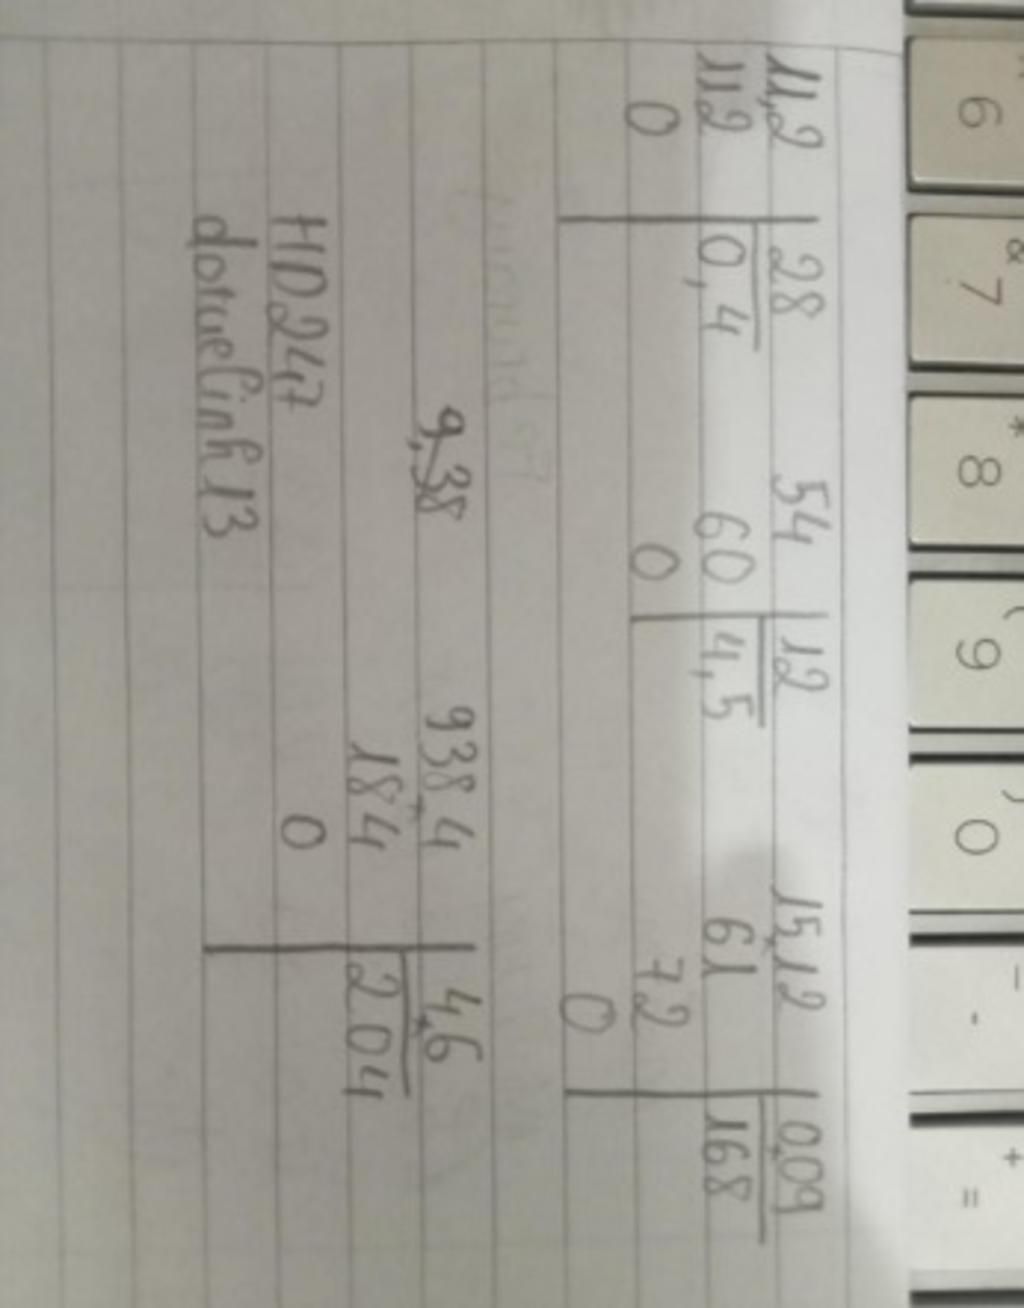 & * ( ) _ +
6 7 8 9 0 - =
11,2 28 54 12 15,12 0,09
112 0,4 60 4,5 61 168
0 0 72
0
9,38 938,4 4,6
184 204
HD247 0
dotuelinh13